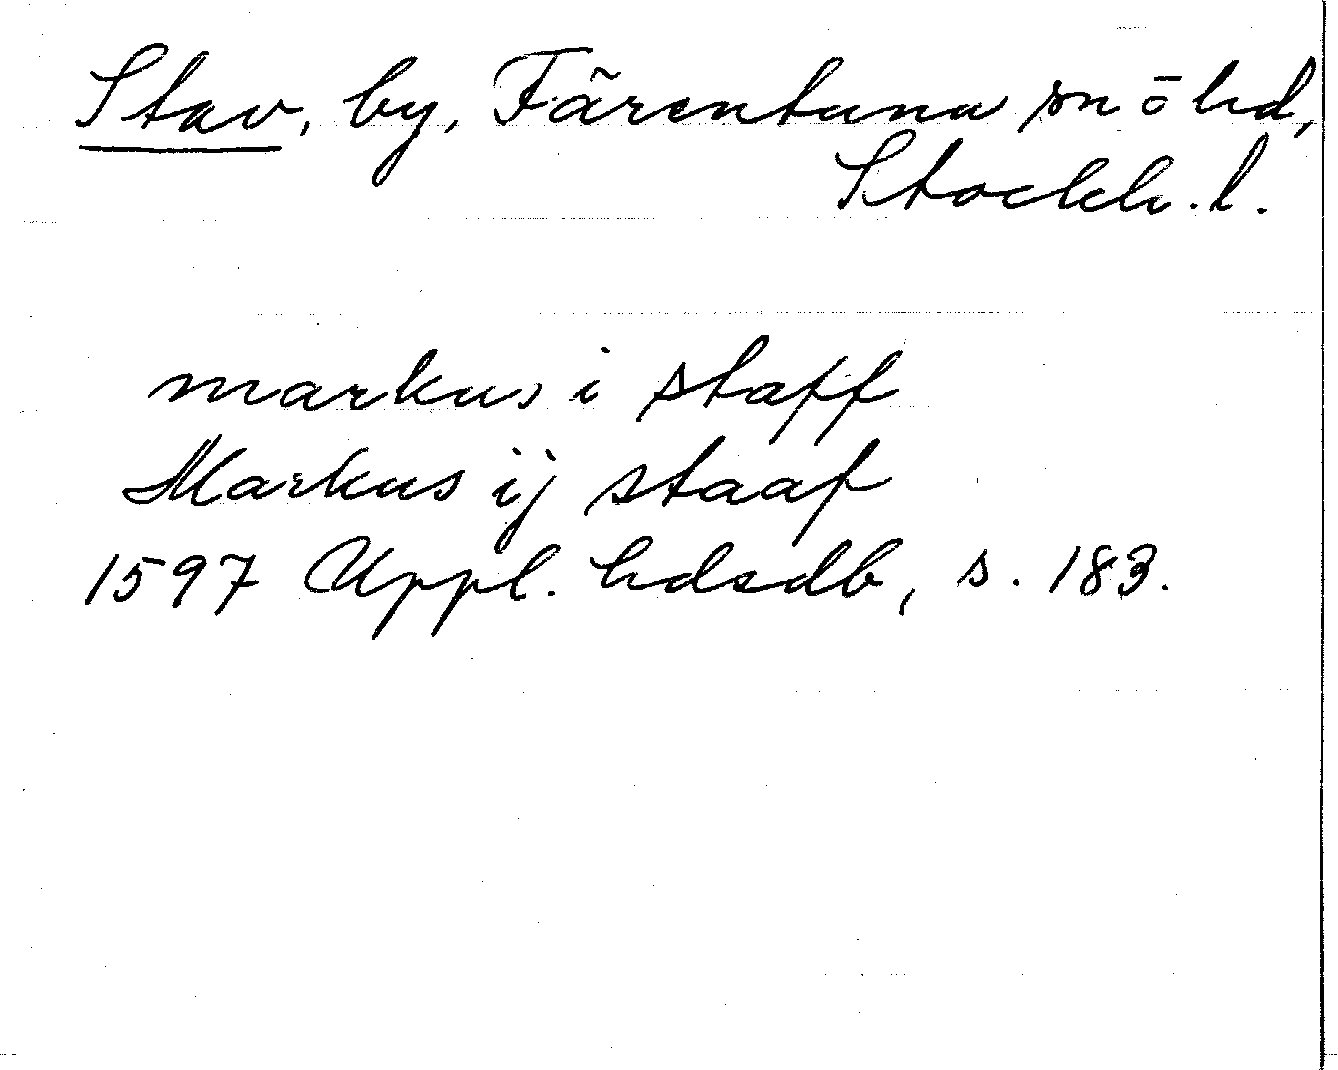 Stav, by, Färentuna sn ö hd,
Stockh. l.
markus i staff
Markus ij staaf
1597 Uppl. hdsdb, s. 183.